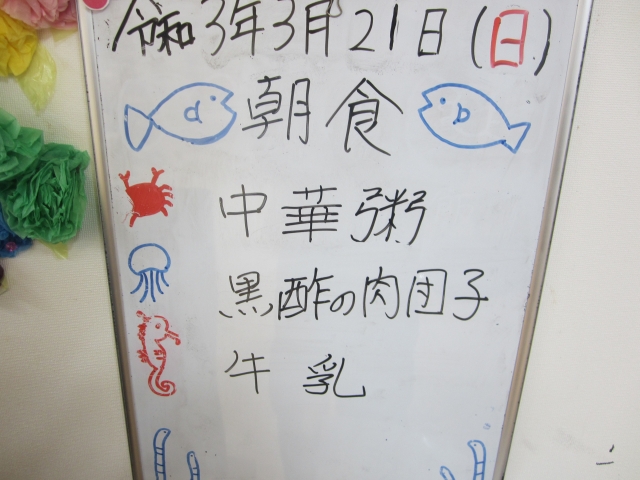 令和3年3月21日(日)
a 朝食 b
中華粥
黒酢の肉団子
牛乳